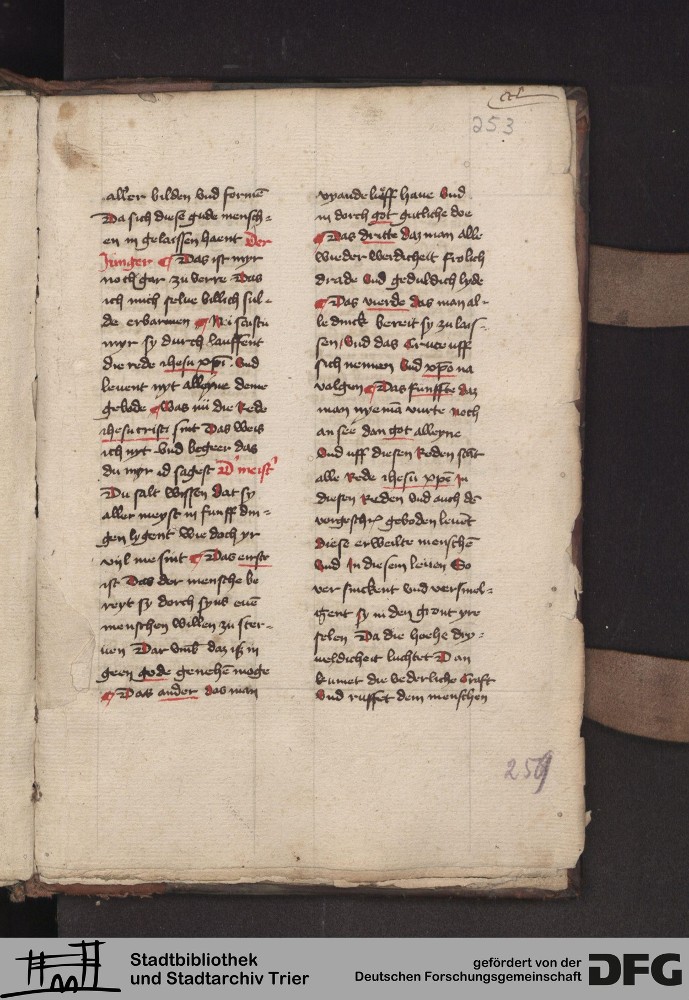 253
aller bilden vnd formē
Da sich diese gude mensch=
en in gelaissen haent Der
Junger Das ist myr
noch gar zu verre Das
ich mich selue billich sul=
de erbarmen
myr sy durch lauffent
die rede ihesu xp̄i vnd
leuent nyt alleyne deme
gebode Was nü die Rede
ihesu cristi sint Das weis
ich nyt vnd begeer das
du myr id sagest D' meist'
Du salt wissen dat sy
aller meyst in funff din=
gen lygent wie doch yr
vijl me sint Das eirste
ist Das der mensche be
reyt sy dorch syns euē
menschen willen zu ster=
uen Dar vmb daz iß in
geen gode genehē moge
Das ander das man
vyande lieff haue vnd
in dorch got gutliche doe
Das dritte daz man alle
wieder werdicheit frolich
drade vnd geduldich lyde
Das vierde das man al=
le dinck bereit sy zu lais=
sen vnd das Cruce uff
sich nemen vnd xpō na
volgen Das funffte daz
man nyemā vurte noch
an seē dan got alleyne
vnd uff diesen Reden
alle Rede ihesu xp̄i In
diesen Reden vnd auch dē
geboden leuēt
diese erwelte menschē
vnd In diesem leuen So
ver sinckent vnd versmel=
gent sy in den gront yre
selen Da die hoehe dry=
ueldicheit luchtet Dan
kumet die vederliche Craft
vnd ruffet dem menschen
259
Stadtbibliothek
und Stadtarchiv Trier
gefördert von der
Deutschen Forschungsgemeinschaft
DFG